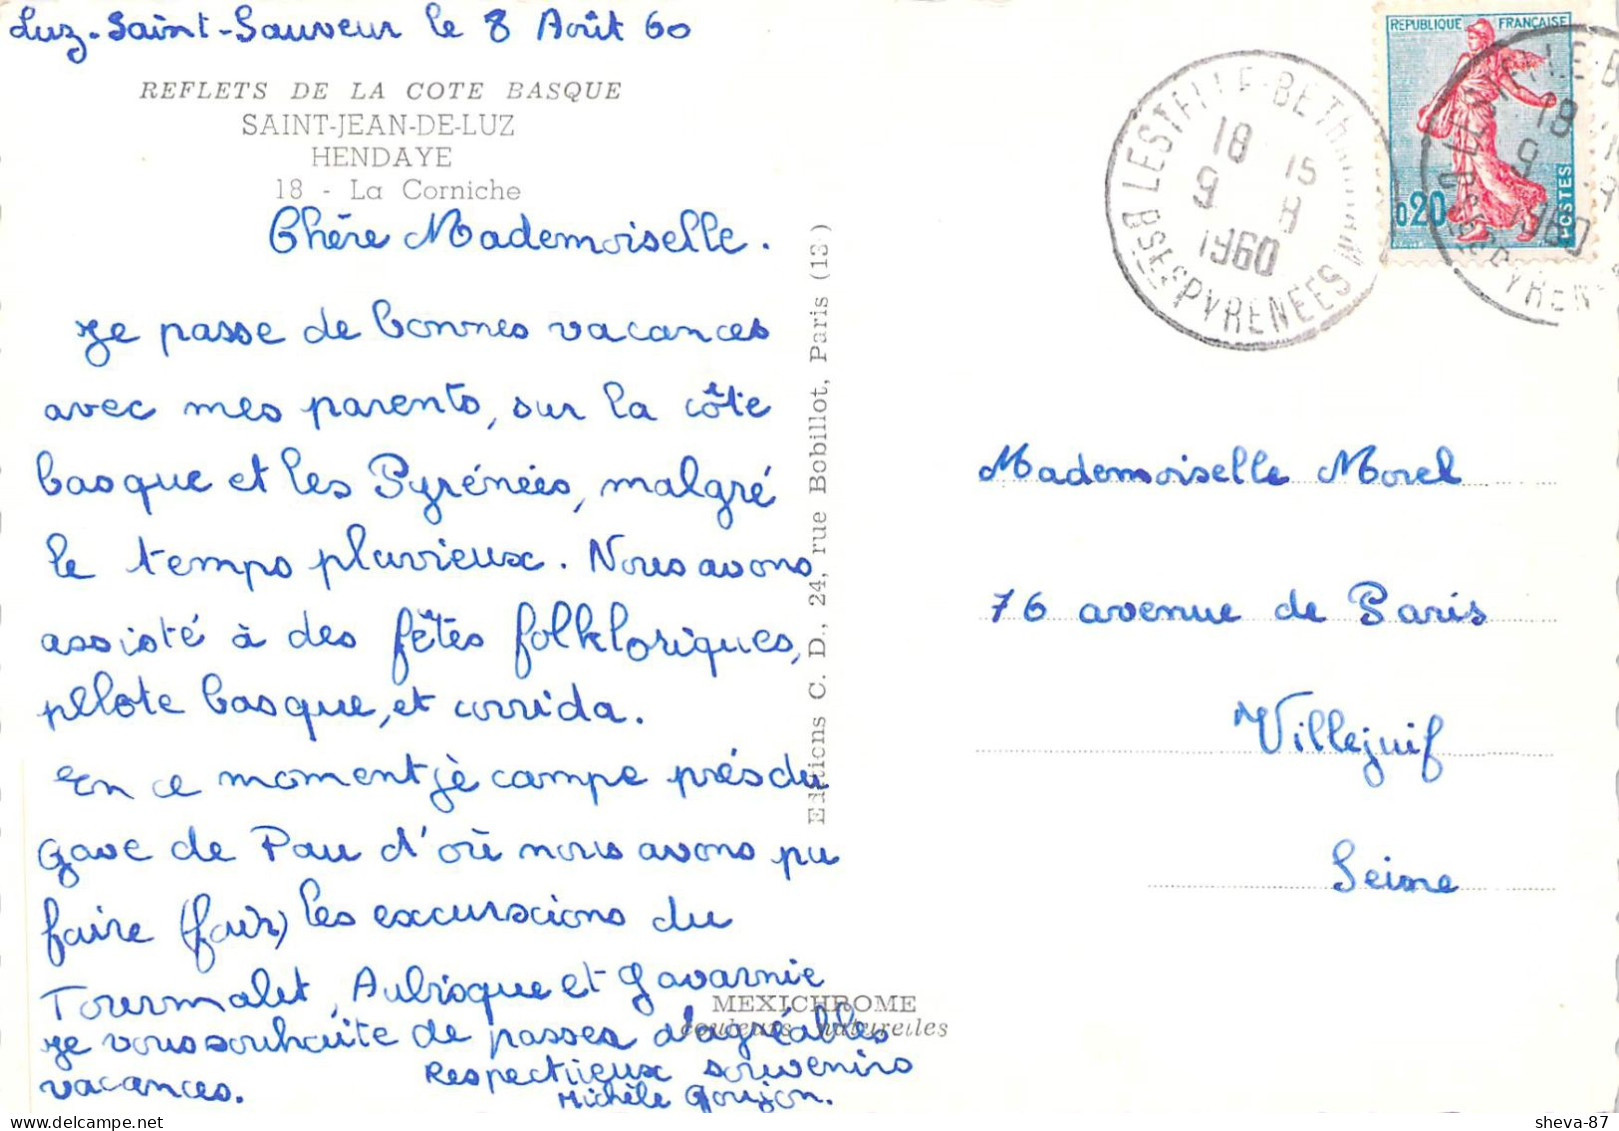 Luz-Saint-Sauveur le 8 Août 60
REFLETS DE LA COTE BASQUE
SAINT-JEAN-DE-LUZ
HENDAYE
18 - La Corniche
Chère Mademoiselle.
Je passe de bonnes vacances
avec mes parents, sur la côte
basque et les Pyrénées, malgré
le temps pluvieux. Nous avons
assisté à des fêtes folkloriques,
pelote basque, et corrida.
En ce moment je campe près du
gave de Pau d'où nous avons pu
faire (fair) les excurscions du
Tourmalet, Aubisque et Gavarnie
Je vous souhaite de passer d'agréables
vacances.
Respectueux souvenirs
Michèle Goujon.
Editions C. D., 24, rue Bobillot, Paris (13)
MEXICHROME
couleurs naturelles
REPUBLIQUE FRANÇAISE
0,20
POSTES
LESTELLE-BETHARRAM
18 15
9 8
1960
BSES PYRENEES
LESTELLE-B
18
9
1960
BSES PYREN
Mademoiselle Morel
76 avenue de Paris
Villejuif
Seine
sheva-87